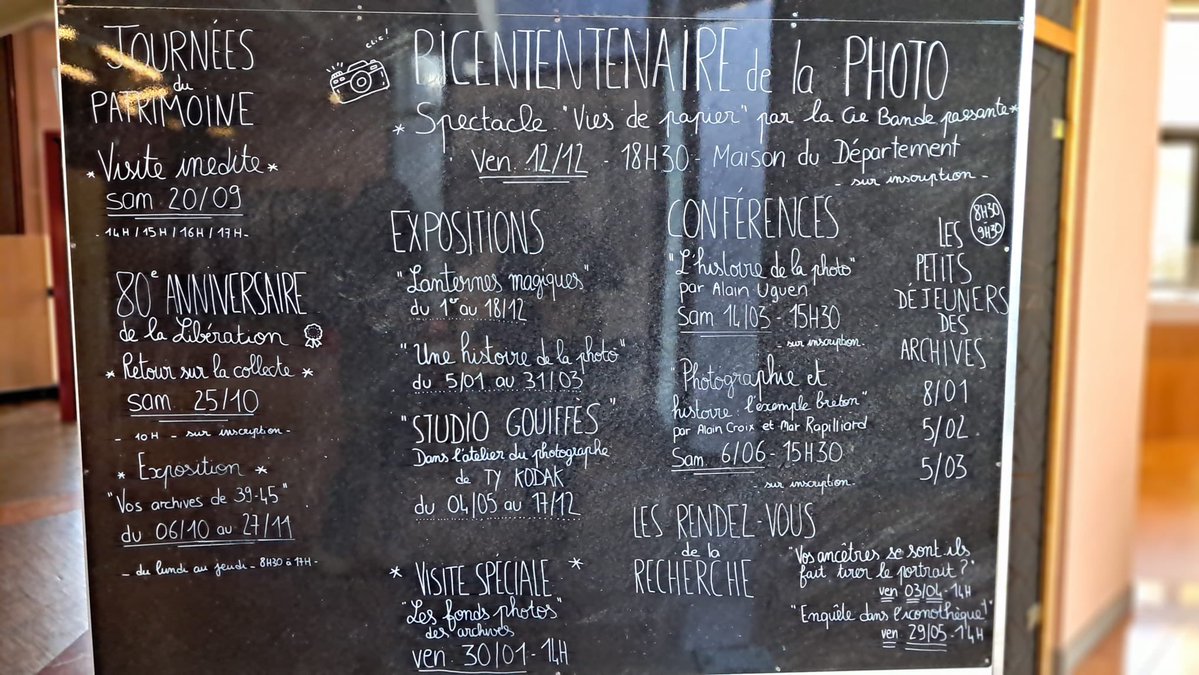 JOURNÉES
du
PATRIMOINE
* Visite inédite *
sam 20/09
- 14H / 15H / 16H / 17H -
80e ANNIVERSAIRE
de la Libération
* Retour sur la collecte *
sam 25/10
- 10H - sur inscription -
* Exposition *
"Vos archives de 39-45"
du 06/10 au 27/11
- du lundi au jeudi - 8H30 à 17H -
CLIC!
BICENTENTENAIRE de la PHOTO
* Spectacle "Vies de papier" par la Cie Bande passante *
Ven. 12/12 - 18H30 - Maison du Département
- sur inscription -
EXPOSITIONS
"Lanternes magiques"
du 1er au 18/12
"Une histoire de la photo"
du 5/01 au 31/03
"STUDIO GOUIFFÈS"
Dans l'atelier du photographe
de TY KODAK
du 04/05 au 17/12
* VISITE SPÉCIALE *
"Les fonds photos"
des archives
ven. 30/01 - 14H
CONFÉRENCES
"L'histoire de la photo"
par Alain Uguen
Sam 14/03 - 15H30
- sur inscription -
"Photographie et
histoire : l'exemple breton"
par Alain Croix et Mat Rapilliard
Sam. 6/06 - 15H30
- sur inscription -
LES
PETITS
DÉJEUNERS
DES
ARCHIVES
8H30
9H30
8/01
5/02
5/03
LES RENDEZ-VOUS
de la
RECHERCHE
"Vos ancêtres se sont ils
fait tirer le portrait ?"
ven 03/04 - 14H
"Enquête dans l'iconothèque!"
ven 29/05 - 14H